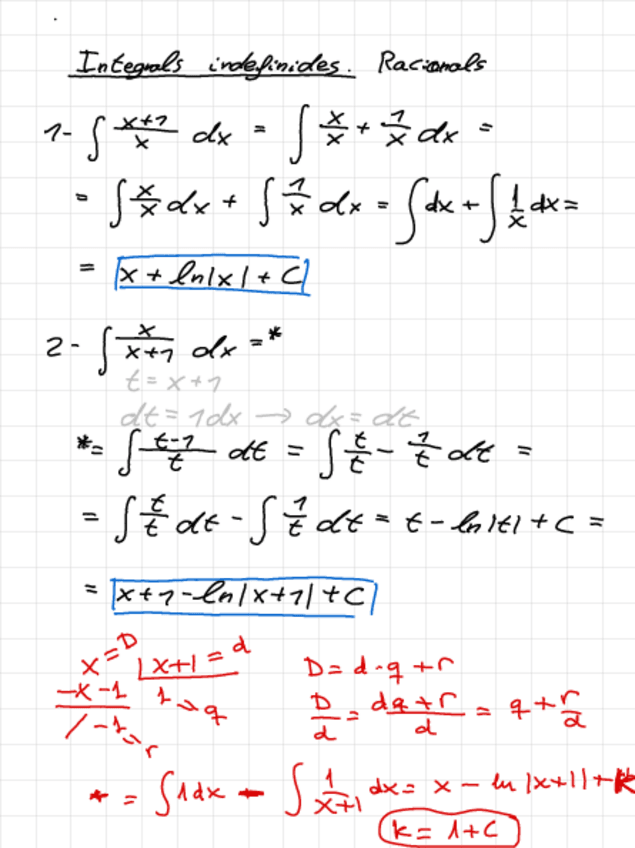 Integrals indefinides. Racionals
1- ∫ (x+1)/x dx = ∫ x/x + 1/x dx =
= ∫ x/x dx + ∫ 1/x dx = ∫ dx + ∫ 1/x dx =
= x + ln|x| + C
2- ∫ x/(x+1) dx =*
t = x+1
dt = 1dx → dx = dt
*= ∫ (t-1)/t dt = ∫ t/t - 1/t dt =
= ∫ t/t dt - ∫ 1/t dt = t - ln|t| + C =
= x+1-ln|x+1| + C
x = D |x+1 = d D = d·q + r
-x-1 1 → q D/d = (dq+r)/d = q + r/d
/ -1 → r
* = ∫ 1dx - ∫ 1/(x+1) dx = x - ln|x+1| + k
k = 1+C